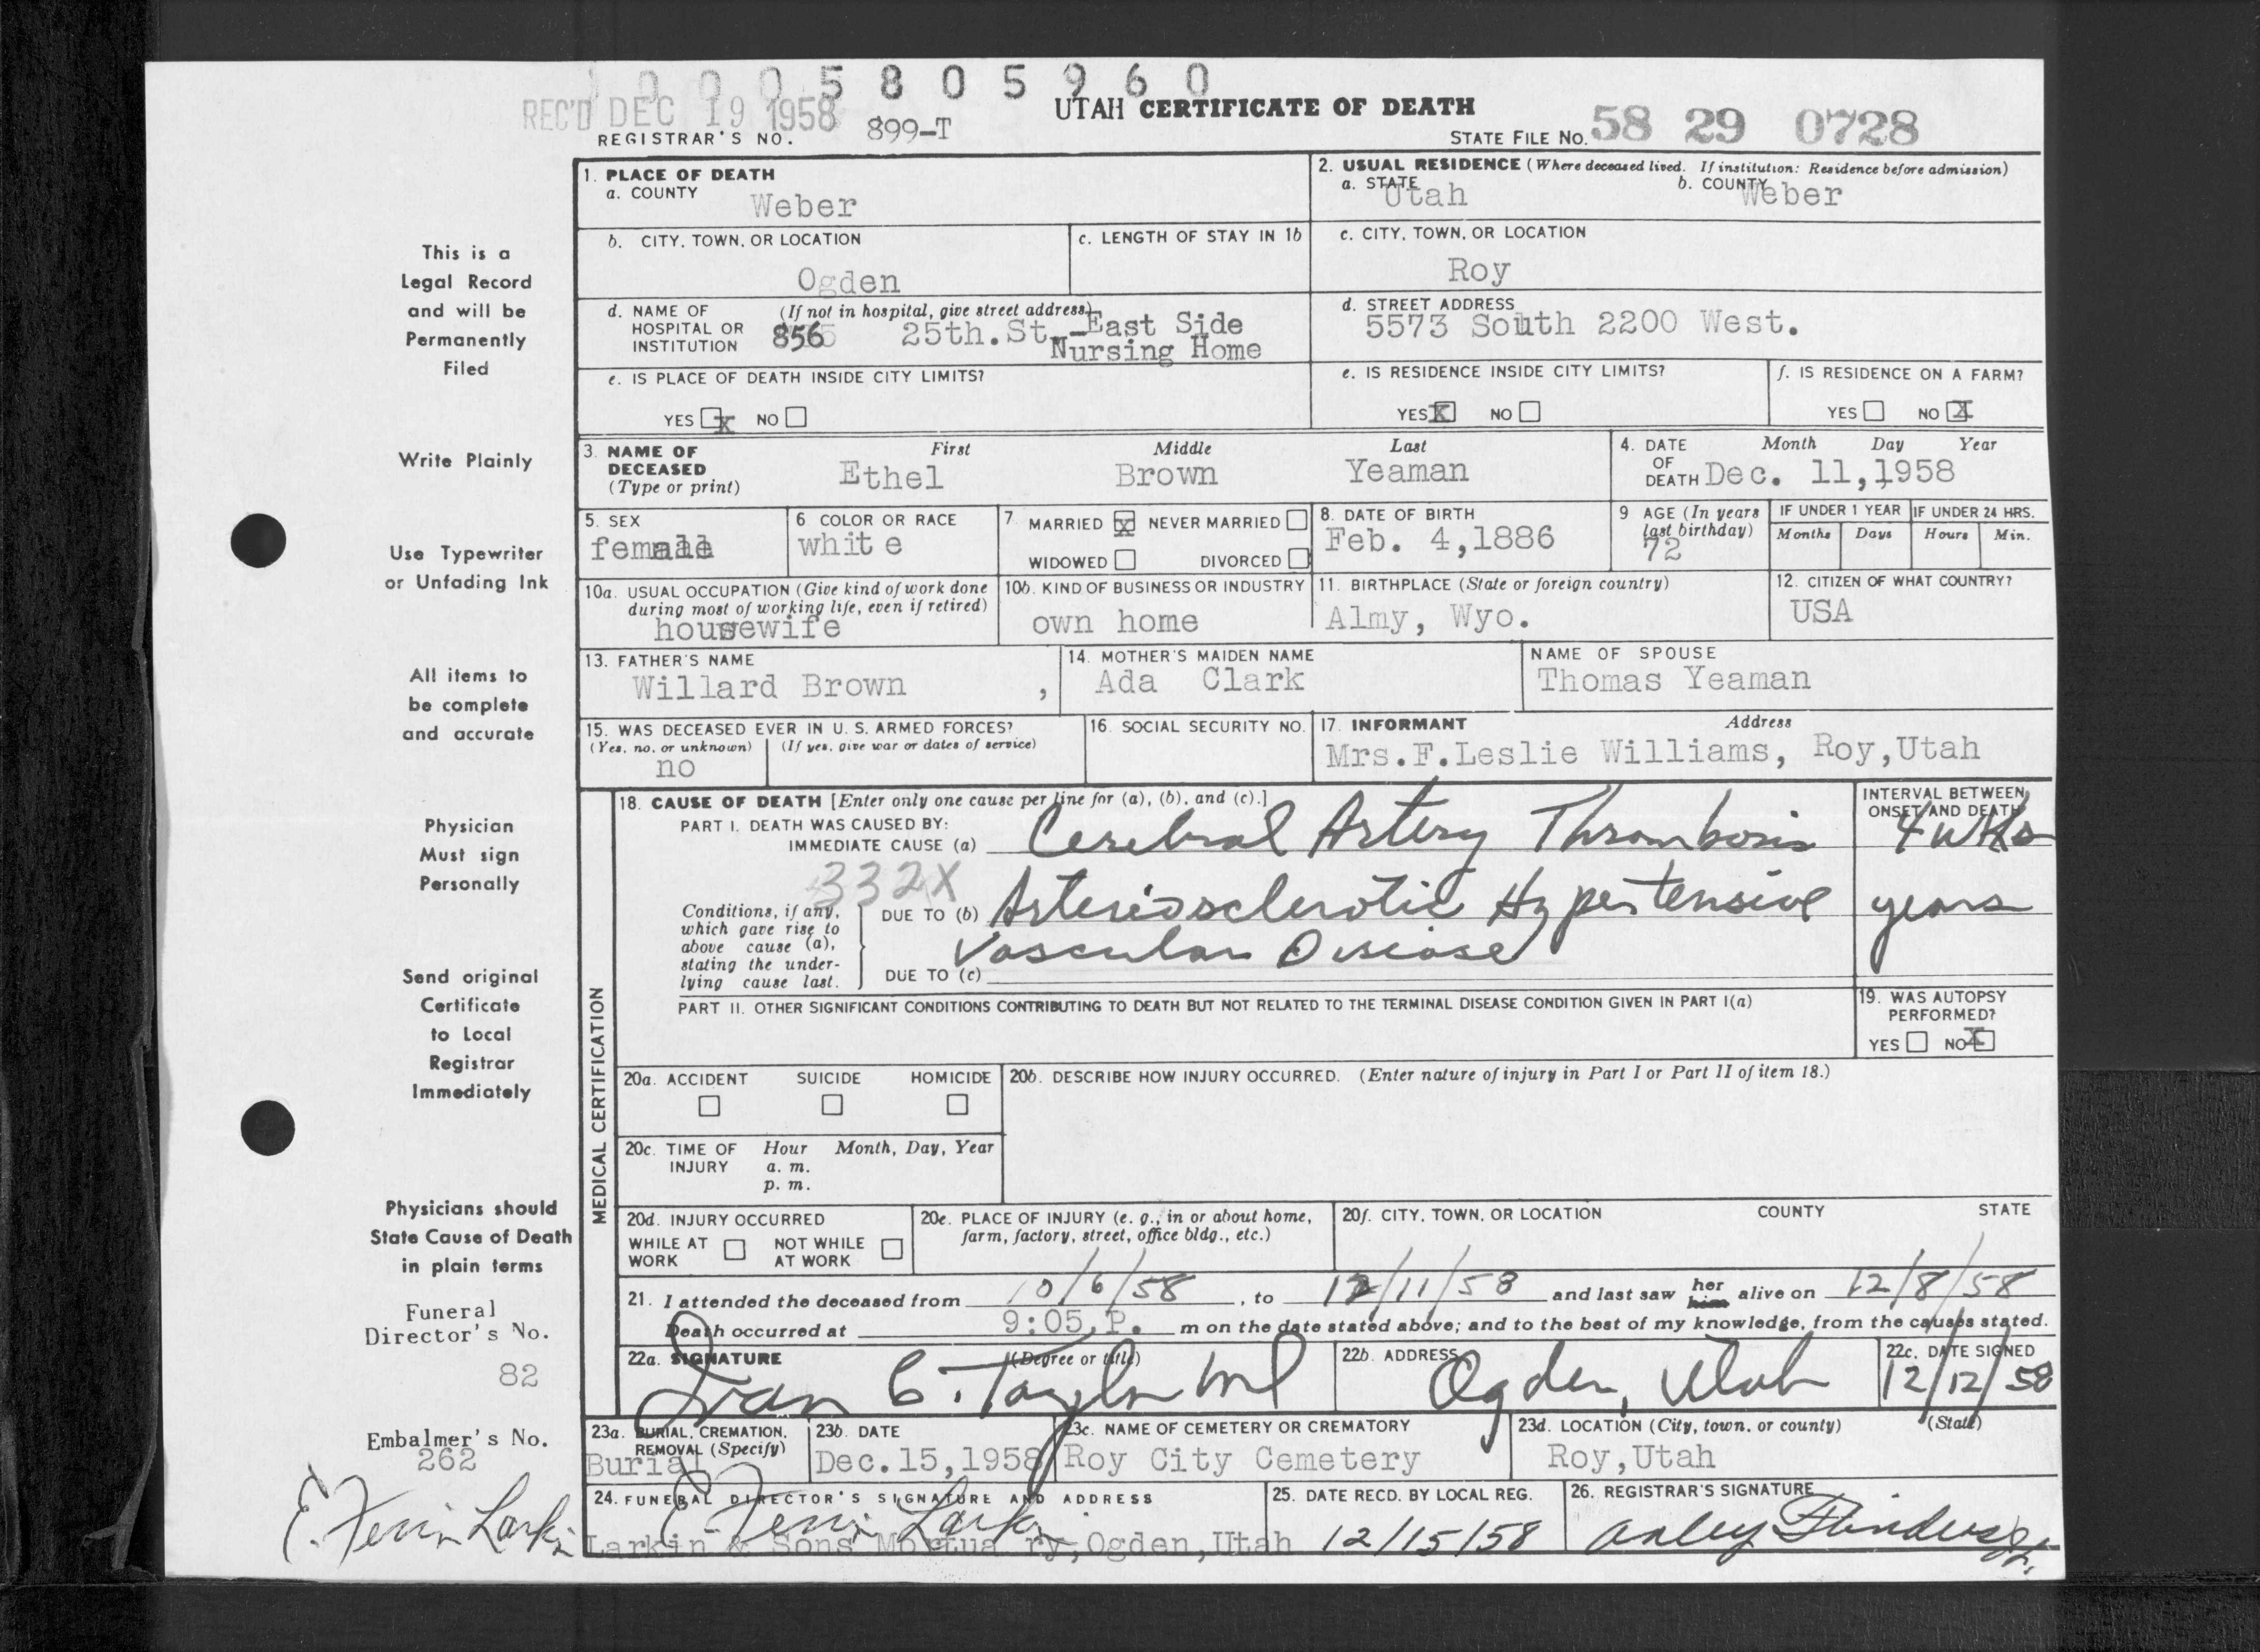 1 0 0 0 5 8 0 5 9 6 0
REC'D DEC 19 1958
REGISTRAR'S NO. 899-T
UTAH CERTIFICATE OF DEATH
STATE FILE NO. 58 29 0728
This is a
Legal Record
and will be
Permanently
Filed
Write Plainly
Use Typewriter
or Unfading Ink
All items to
be complete
and accurate
Physician
Must sign
Personally
Send original
Certificate
to Local
Registrar
Immediately
Physicians should
State Cause of Death
in plain terms
Funeral
Director's No.
82
Embalmer's No.
262
E. Ferrin Larkin
1. PLACE OF DEATH
a. COUNTY
Weber
2. USUAL RESIDENCE (Where deceased lived. If institution: Residence before admission)
a. STATE Utah b. COUNTY Weber
b. CITY, TOWN, OR LOCATION
Ogden
c. LENGTH OF STAY IN 1b
c. CITY, TOWN, OR LOCATION
Roy
d. NAME OF (If not in hospital, give street address)
HOSPITAL OR
INSTITUTION 856 25th.St.-East Side
Nursing Home
d. STREET ADDRESS
5573 South 2200 West.
e. IS PLACE OF DEATH INSIDE CITY LIMITS?
YES X NO
e. IS RESIDENCE INSIDE CITY LIMITS?
YES X NO
f. IS RESIDENCE ON A FARM?
YES NO X
3. NAME OF
DECEASED
(Type or print)
First Middle Last
Ethel Brown Yeaman
4. DATE Month Day Year
OF
DEATH Dec. 11,1958
5. SEX
female
6 COLOR OR RACE
white
7. MARRIED X NEVER MARRIED
WIDOWED DIVORCED
8. DATE OF BIRTH
Feb. 4,1886
9 AGE (In years
last birthday)
72
IF UNDER 1 YEAR IF UNDER 24 HRS.
Months Days Hours Min.
10a. USUAL OCCUPATION (Give kind of work done
during most of working life, even if retired)
housewife
10b. KIND OF BUSINESS OR INDUSTRY
own home
11. BIRTHPLACE (State or foreign country)
Almy, Wyo.
12. CITIZEN OF WHAT COUNTRY?
USA
13. FATHER'S NAME
Willard Brown ,
14. MOTHER'S MAIDEN NAME
Ada Clark
NAME OF SPOUSE
Thomas Yeaman
15. WAS DECEASED EVER IN U. S. ARMED FORCES?
(Yes, no, or unknown) (If yes, give war or dates of service)
no
16. SOCIAL SECURITY NO.
17. INFORMANT Address
Mrs.F.Leslie Williams, Roy,Utah
MEDICAL CERTIFICATION
18. CAUSE OF DEATH [Enter only one cause per line for (a), (b), and (c).]
PART I. DEATH WAS CAUSED BY:
IMMEDIATE CAUSE (a) Cerebral Artery Thrombosis
INTERVAL BETWEEN
ONSET AND DEATH
4 wks
332X
Conditions, if any,
which gave rise to
above cause (a),
stating the under-
lying cause last.
DUE TO (b) Arteriosclerotic Hypertensive years
Vascular Disease
DUE TO (c)
PART II. OTHER SIGNIFICANT CONDITIONS CONTRIBUTING TO DEATH BUT NOT RELATED TO THE TERMINAL DISEASE CONDITION GIVEN IN PART I(a)
19. WAS AUTOPSY
PERFORMED?
YES NO X
20a. ACCIDENT SUICIDE HOMICIDE
20b. DESCRIBE HOW INJURY OCCURRED. (Enter nature of injury in Part I or Part II of item 18.)
20c. TIME OF Hour Month, Day, Year
INJURY a. m.
p. m.
20d. INJURY OCCURRED
WHILE AT NOT WHILE
WORK AT WORK
20e. PLACE OF INJURY (e. g., in or about home,
farm, factory, street, office bldg., etc.)
20f. CITY, TOWN, OR LOCATION COUNTY STATE
21. I attended the deceased from 10/6/58, to 12/11/58 and last saw her him alive on 12/8/58
Death occurred at 9:05 P. m on the date stated above; and to the best of my knowledge, from the causes stated.
22a. SIGNATURE (Degree or title)
Ivan C. Taylor MD
22b. ADDRESS
Ogden, Utah
22c. DATE SIGNED
12/12/58
23a. BURIAL, CREMATION,
REMOVAL (Specify)
Burial
23b. DATE
Dec.15,1958
23c. NAME OF CEMETERY OR CREMATORY
Roy City Cemetery
23d. LOCATION (City, town, or county) (State)
Roy,Utah
24. FUNERAL DIRECTOR'S SIGNATURE AND ADDRESS
E. Ferrin Larkin
Larkin & Sons Mortuary,Ogden,Utah
25. DATE RECD. BY LOCAL REG.
12/15/58
26. REGISTRAR'S SIGNATURE
Flinders